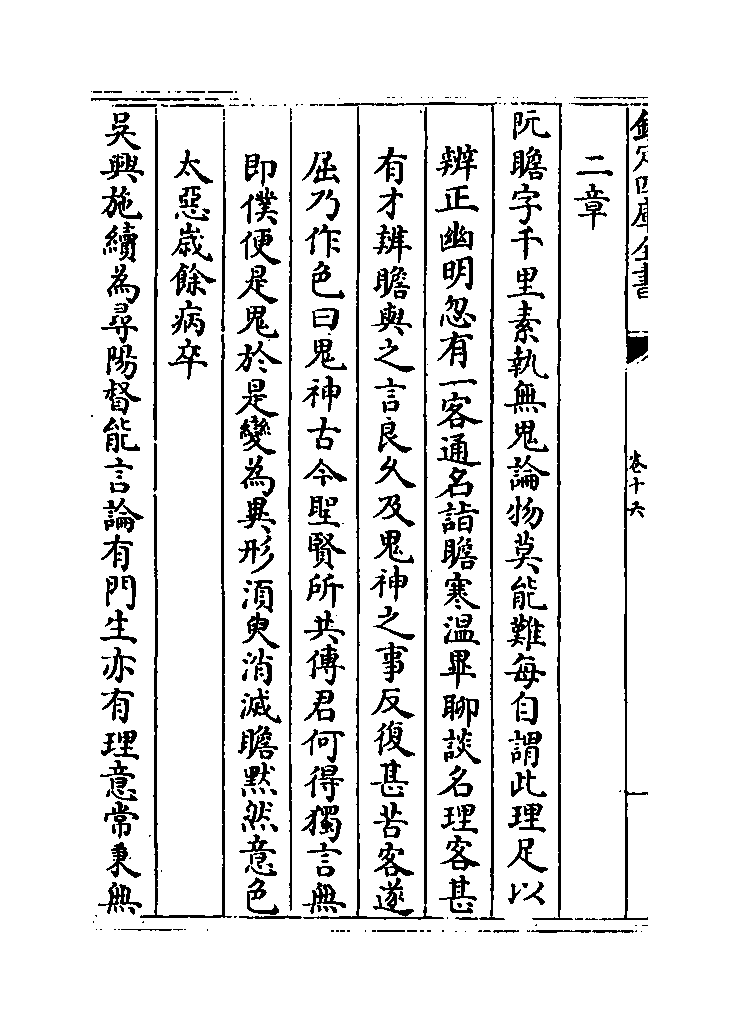 欽定四庫全書
卷十六
二章
阮瞻字千里素執無鬼論物莫能難每自謂此理足以
辨正幽明忽有一客通名詣瞻寒温畢聊談名理客甚
有才辨瞻與之言良久及鬼神之事反復甚苦客遂
屈乃作色曰鬼神古今聖賢所共傳君何得獨言無
即僕便是鬼於是變為異形須臾消滅瞻黙然意色
太惡嵗餘病卒
吳興施續為尋陽督能言論有門生亦有理意常秉無